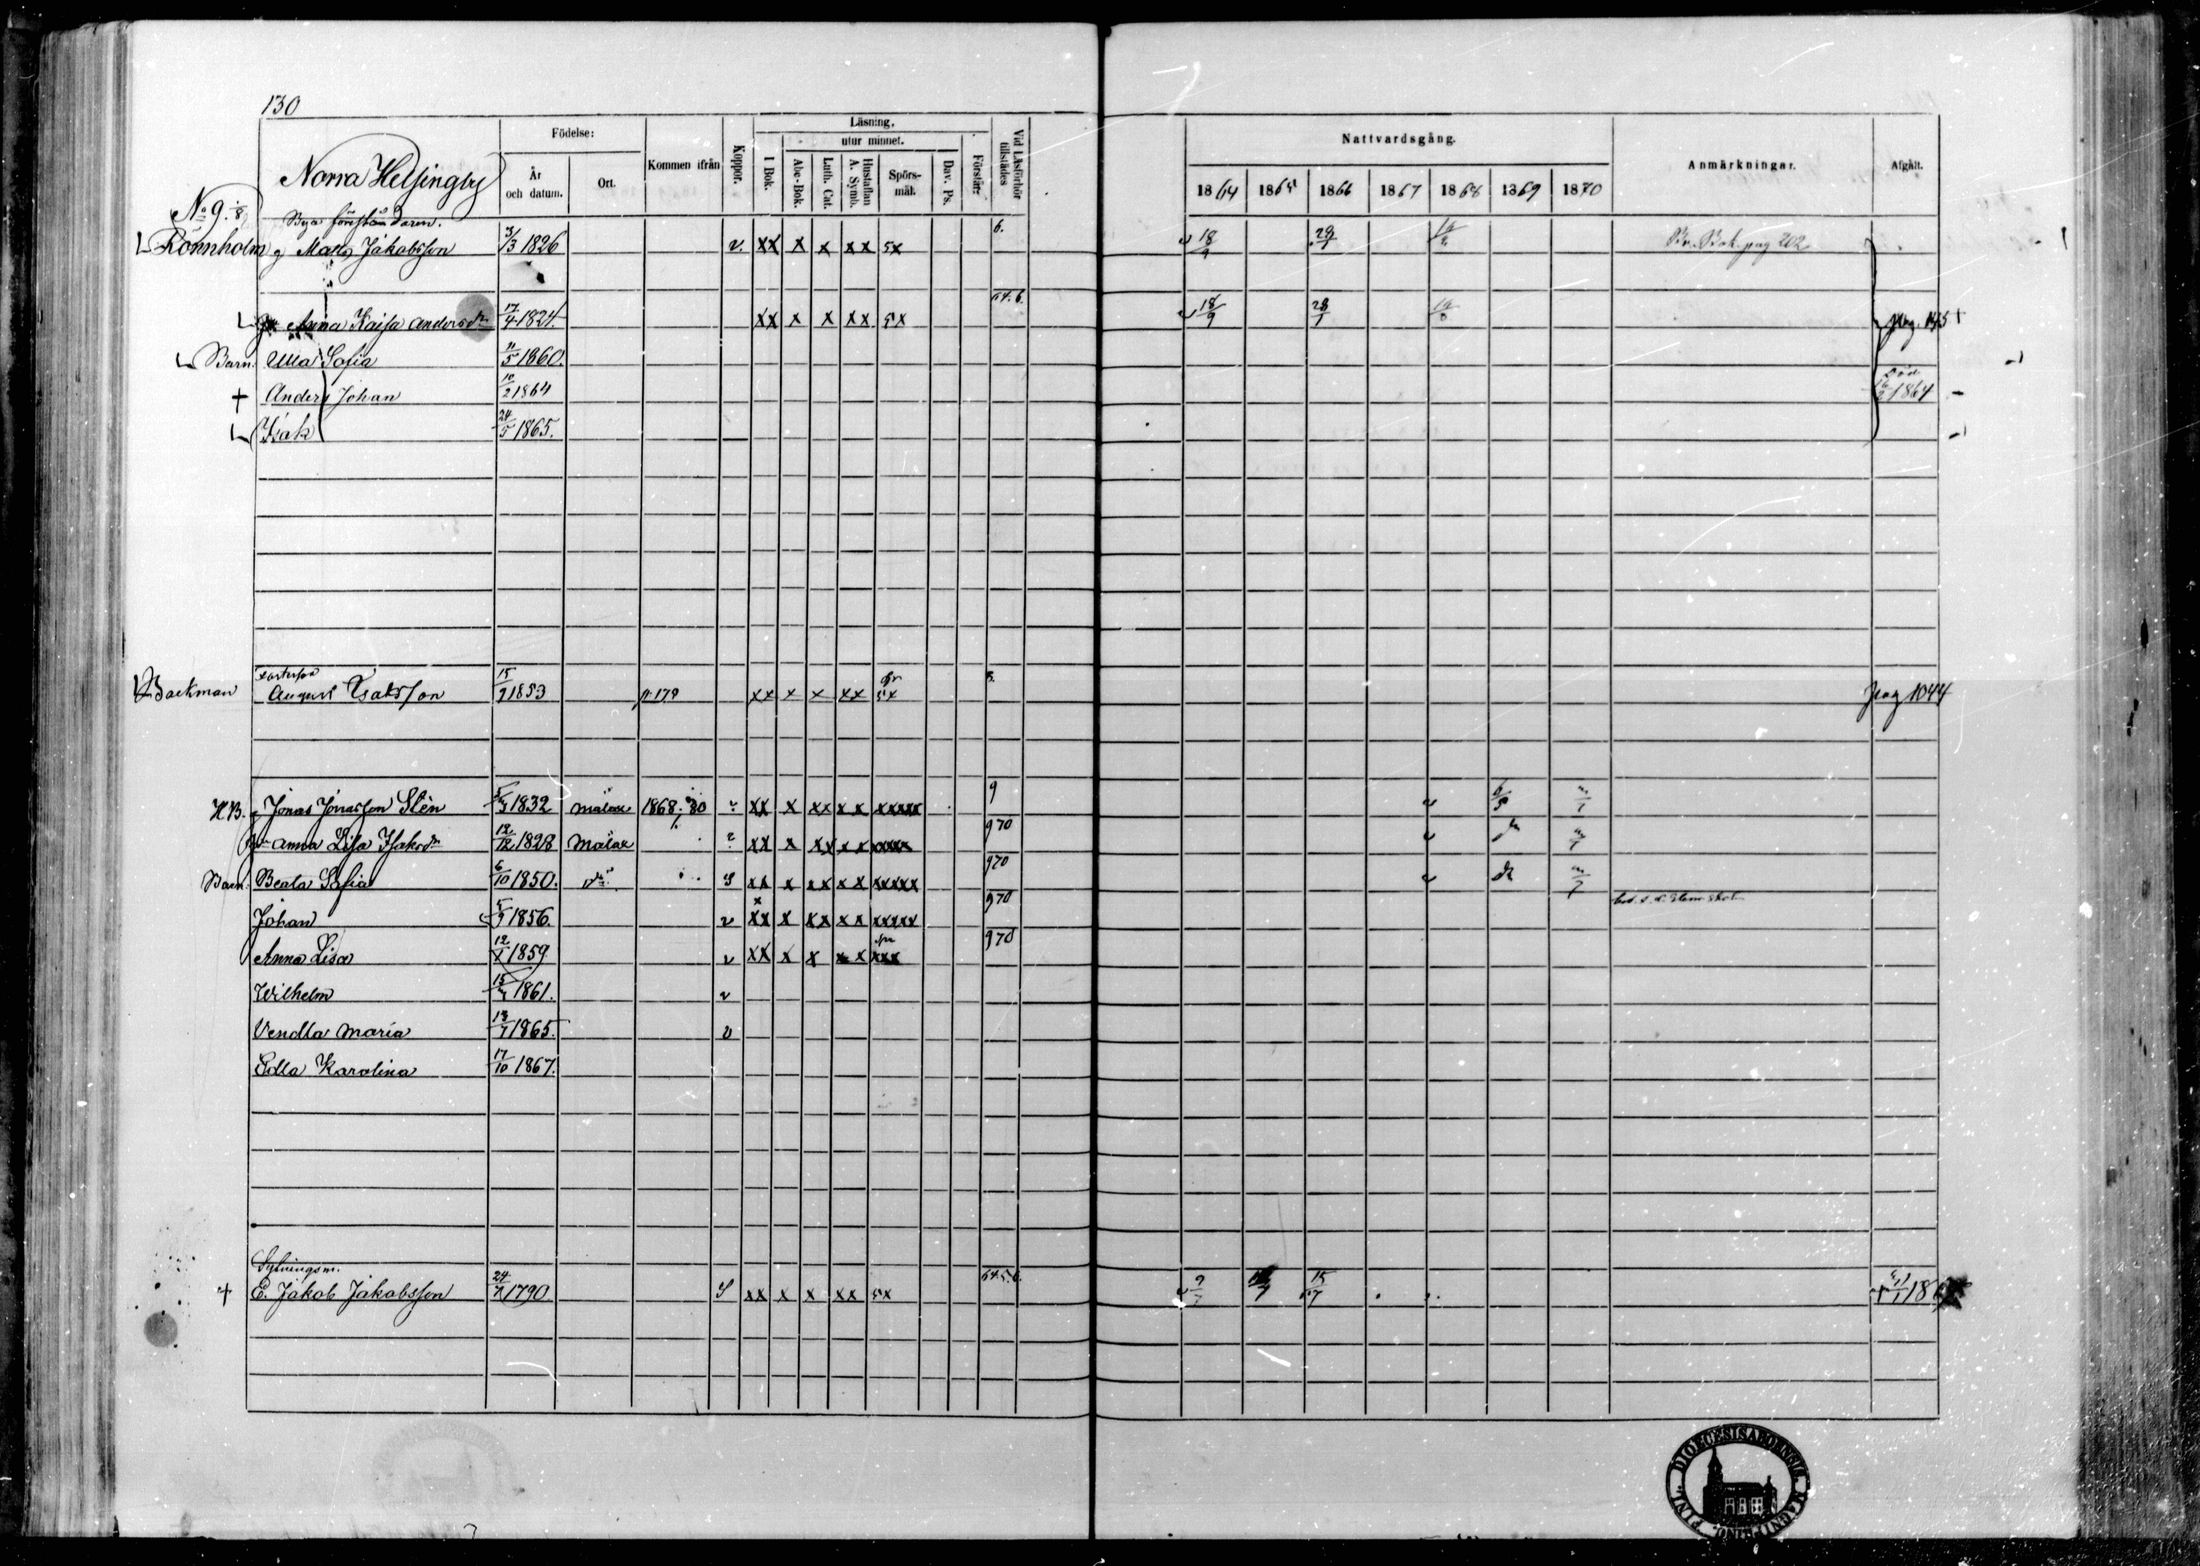 130
Norra Helsingby
Födelse:
År och datum.
Ort.
Kommen ifrån
Koppor.
Läsning.
utur minnet.
I Bok.
Abc-Bok.
Luth. Cat.
Hustaflan A. Symb.
Spörs-mål.
Dav. Ps.
Förstår:
Vid Läsförhör tillstädes
Nattvardsgång.
1864 1865 1866 1867 1868 1869 1870
Anmärkningar.
Afgått.
No 9. 1/8
Bya föreståndaren.
Rönnholm g Mats Jakobsson 3/3 1826 v xx x x xx 5x 6. 18/9 Br. Bok pag 202
Anna Kajsa Andersdr 17/4 1824. xx x x xx 5x 64.6. 18/9 pag. 145
Barn. Ulla Sofia 11/5 1860.
+ Anders Johan 10/2 1864 Död 1864
Isak 24/5 1865.
Backman August Isaksson 15/9 1853 p. 179 xx x x xx 5x pag 1044
H.B. g Jonas Jonasson Stén 1832 Malax 1868, 80 xx x xx xx xxxxx 9 6/5
Anna Lisa Isaksdr 12/12 1828 Malax xx x xx xx xxxx 970 do
Barn. Beata Sofia 6/10 1850. do S xx x xx xx xxxxx 970 do
Johan 5/9 1856. v xx x xx xx xxxxx 970
Anna Lisa 12/1 1859 v xx x x xx xxx 970
Wilhelm 1861. v
Vendla Maria 13/7 1865. v
Edla Karolina 17/10 1867.
Sytningsm.
+ E. Jakob Jakobsson 24/7 1790 S xx x x xx 5x 64.5.6. 9/7 15/7